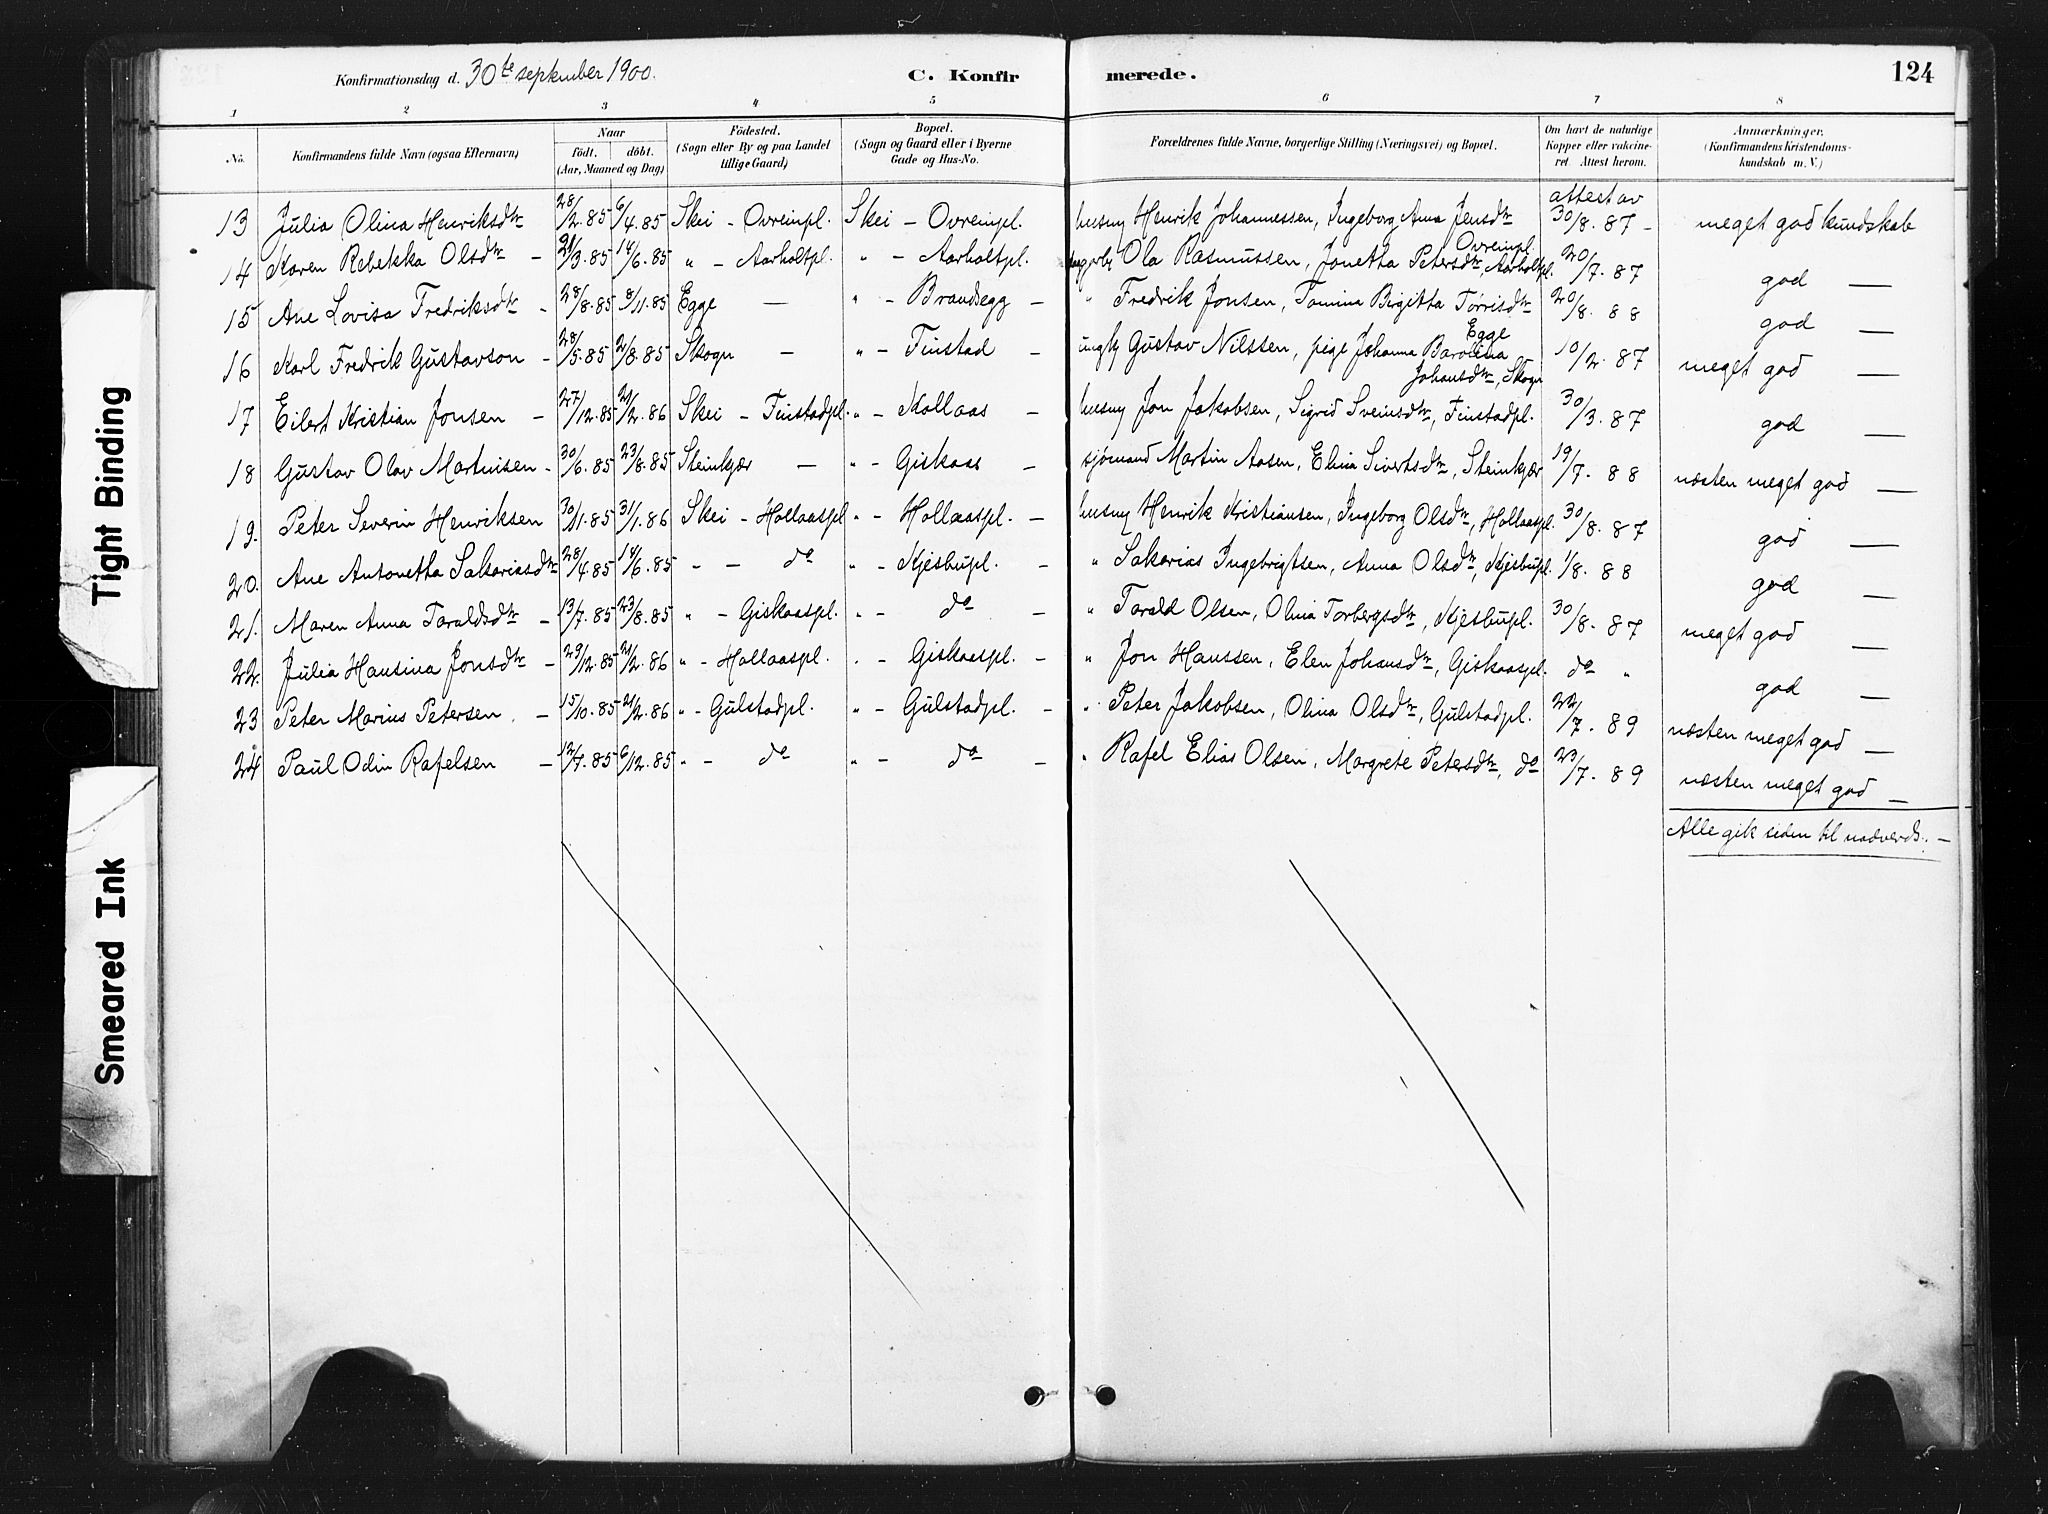 Konfirmationsdag d. 30te september 1900.
C. Konfirmerede.
124
1 2 3 4 5 6 7 8
No.
Konfirmandens fulde Navn (ogsaa Efternavn)
Naar
födt. döbt.
(Aar, Maaned og Dag)
Födested.
(Sogn eller By og paa Landet
tillige Gaard)
Bopæl.
(Sogn og Gaard eller i Byerne
Gade og Hus-No.
Forældrenes fulde Navne, borgerlige Stilling (Næringsvei) og Bopæl.
Om havt de naturlige
Kopper eller vakcine-
ret Attest herom.
Anmærkninger.
(Konfirmandens Kristendoms-
kundskab m. V.)
attest av
13 Julia Olina Henriksdtr 28/2.85 6/4.85 Skei - Ovreinpl. Skei - Ovreinpl. husmd Henrik Johannessen, Ingeborg Anna Jensdtr Ovreinpl. 30/8.87 - meget god kundskab
14 Karen Rebekka Olsdtr - 21/3.85 14/6.85 " - Aarholtpl. " - Aarholtpl. Ola Rasmussen, Jonetta Petersdtr, Aarholtpl. 20/7.87 god —
15 Ane Lovisa Fredriksdtr - 28/8.85 8/11.85 Egge — " - Brandsegg - " Fredrik Jonsen, Tomina Birgitta Torrisdtr Egge 20/8.88 god —
16 Karl Fredrik Gustavson - 28/5.85 2/8.85 Skogn — " - Finstad - ungk Gustav Nilssen, pige Johanna Barolina
Johansdtr, Skogn 10/2.87 meget god —
17 Eilert Kristian Jonsen - 27/12.85 21/2.86 Skei - Finstadpl. " - Kollaas - husmd Jon Jakobsen, Sigrid Sveinsdtr, Finstadpl. 30/3.87 god —
18 Gustav Olav Martinsen - 30/6.85 23/8.85 Steinkjær — " - Giskaas - sjømand Martin Aasen, Elina Sivertsdtr, Steinkjær 19/7.88 næsten meget god —
19. Peter Severin Henriksen 30/11.85 31/1.86 Skei - Hollaaspl " - Hollaaspl. - husmd Henrik Kristiansen, Ingeborg Olsdtr, Hollaaspl. 30/8.87 god —
20. Ane Antonetta Sakariasdtr 28/4.85 14/6.85 " - do " - Kjesbupl. - " Sakarias Ingebrigtsen, Anna Olsdtr, Kjesbupl. 1/8.88 god —
21. Maren Anna Toraldsdtr - 13/7.85 23/8.85 " - Giskaaspl. " - do - " Torald Olsen, Olina Torbergsdtr, Kjesbupl. 30/8.87 meget god —
22. Julia Hansina Jonsdtr - 29/12.85 21/2.86 " - Hollaaspl. " - Giskaaspl. - " Jon Hanssen, Elen Johansdtr, Giskaaspl. do " god —
23 Peter Marius Petersen. - 15/10.85 21/2.86 " - Gulstadpl. " - Gulstadpl. - " Peter Jakobsen, Olina Olsdtr, Gulstadpl. 22/7.89 næsten meget god —
24 Paul Odin Rafelsen - 12/7.85 6/12.85 " - do " - do - " Rafel Elias Olsen, Margrete Petersdtr, do 23/7.89 næsten meget god —
Alle gik siden til nadverds. -
Tight Binding
Smeared Ink